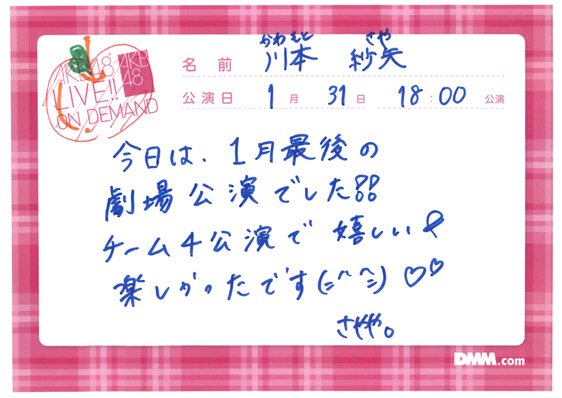 AKB48
LIVE!!
ON DEMAND
AKB
48
かわ もと さや
名前 川本 紗矢
公演日 1月 31日 18:00 公演
今日は、1月最後の
劇場公演でした!!
チーム4公演で 嬉しい!
楽しかったです(=^^=)♡♡
さやや。
DMM.com